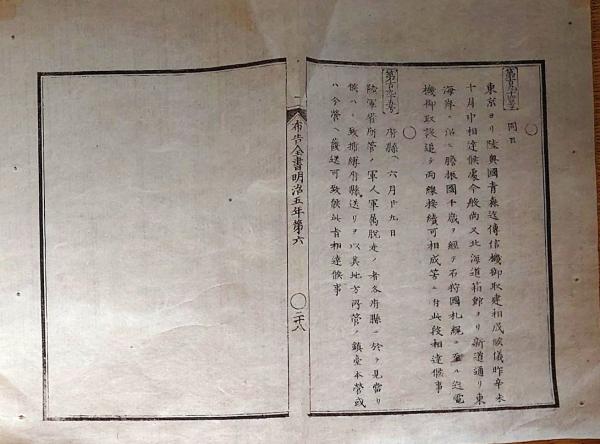 第百九十四号
同日
東京ヨリ陸奥國青森迄傳信機御取建相成候儀昨辛未
十月中相達候處今般尚又北海道箱館ヨリ新道通リ東
海岸ニ沿ヒ膽振國千歳ヲ經テ石狩國札幌ニ至ル迄電
機御取設追テ両線接續可相成筈ニ付此段相達候事
第百九十五号
府縣ヘ 六月廿九日
陸軍省所管ノ軍人軍属脱走ノ者各府縣ニ於テ見當リ
候ハヽ致捕縛府縣送リヲ以其地方所管ノ鎮臺本營或
ハ分營ヘ護送可致候此旨相達候事
布告全書明治五年第六
二十八